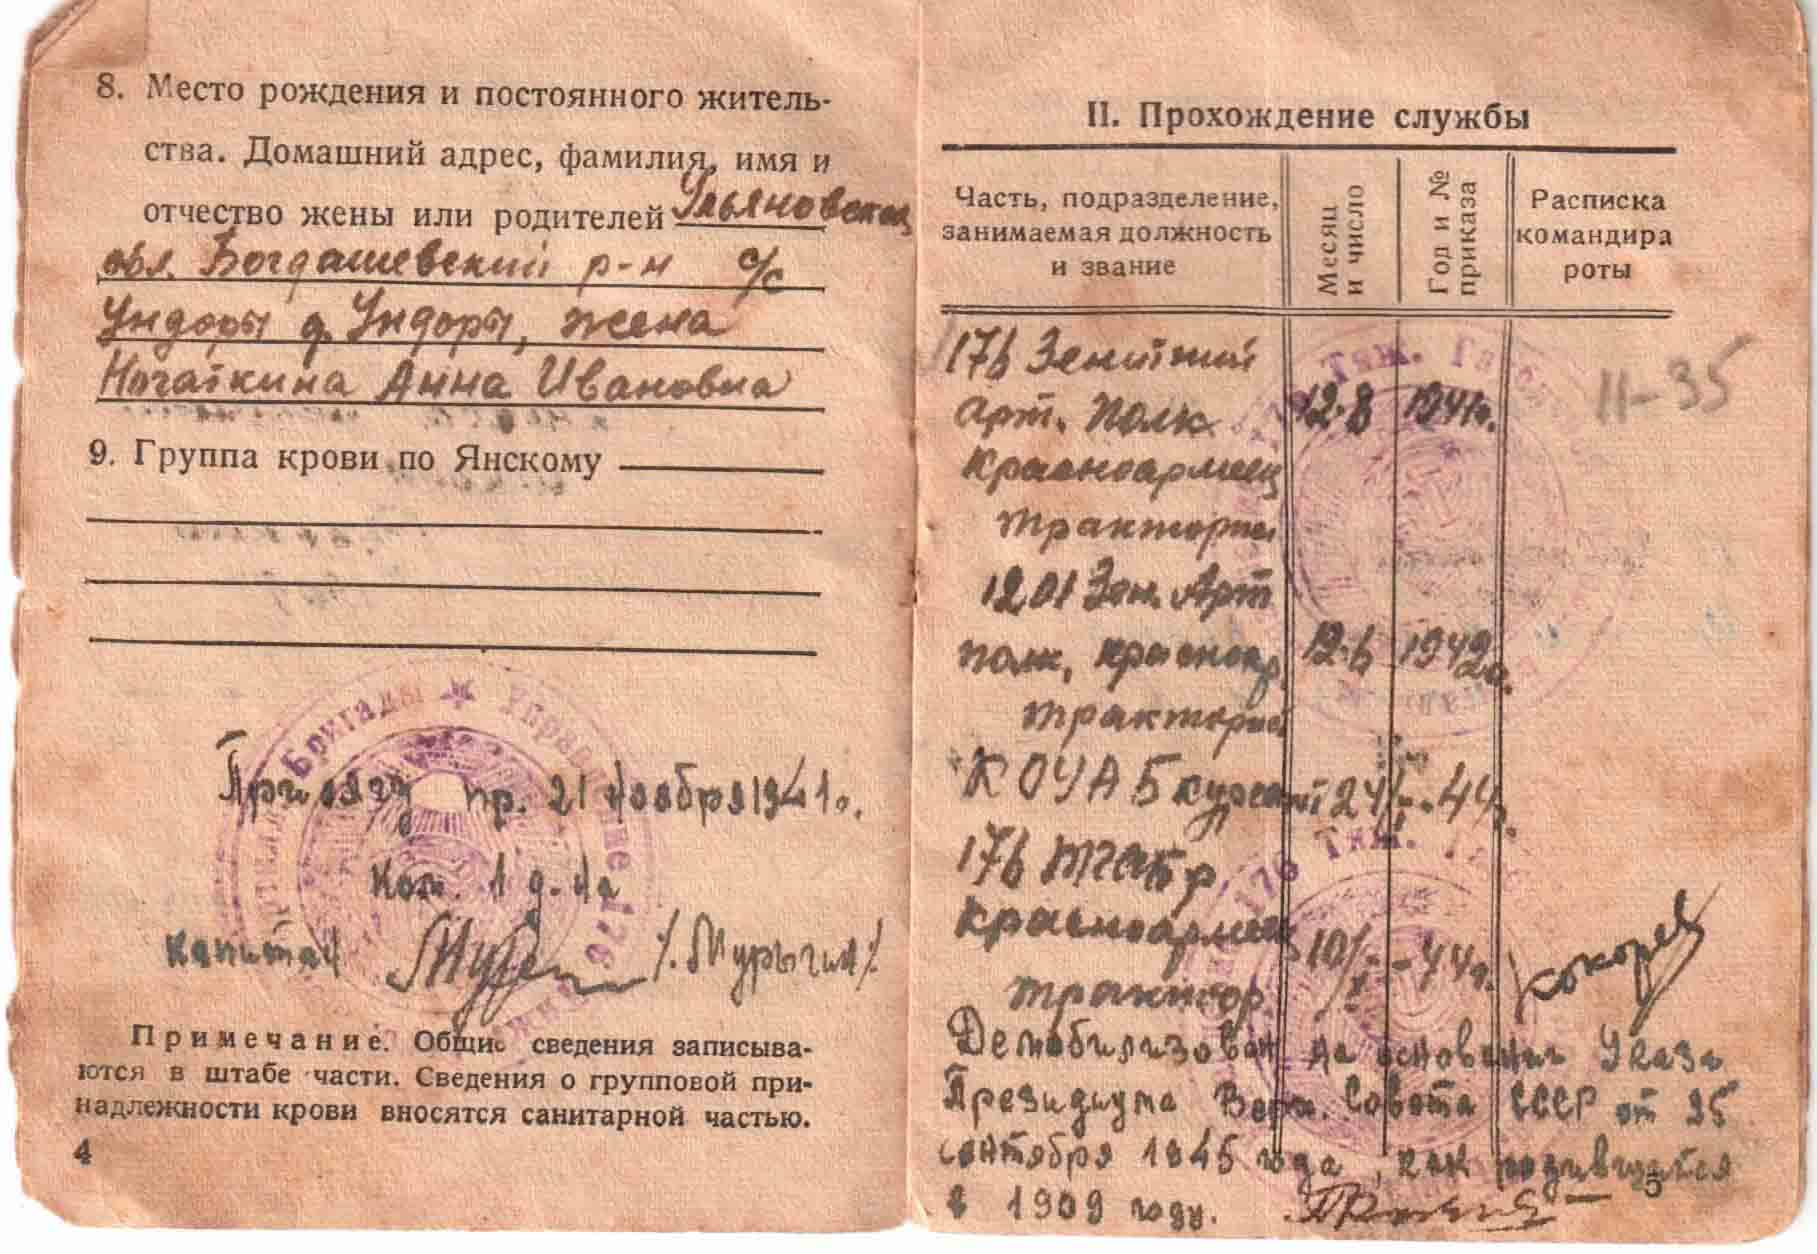 8. Место рождения и постоянного житель-
ства. Домашний адрес, фамилия, имя и
отчество жены или родителей Ульяновская
обл. Богдашевский р-н с/с
Ундоры д. Ундоры, жена
Ночаткина Анна Ивановна
9. Группа крови по Янскому
Бригады ★ Управление 176
Присягу пр. 21 ноября 1941г.
Ком. 1 д-на
капитан /.Мурыгин/.
Примечание. Общие сведения записыва-
ются в штабе части. Сведения о групповой при-
надлежности крови вносятся санитарной частью.
4
II. Прохождение службы
Часть, подразделение, занимаемая должность и звание
Месяц и число
Год и № приказа
Расписка командира роты
176 Зенитный
Арт. Полк 12.8 1941г. 11-35
Красноармеец
тракторист
1201 Зен. Арт
полк, красноар. 12.6 1942г.
тракторист
КОУАБ курсант 24/I-44г.
176 Тяж.
176
красноармеец
трактор. 10/X-44г. Кокорев
Демобилизован на основании Указа
Президиума Верх. Совета СССР от 25
сентября 1945 года, как родившийся
в 1909 году.
5